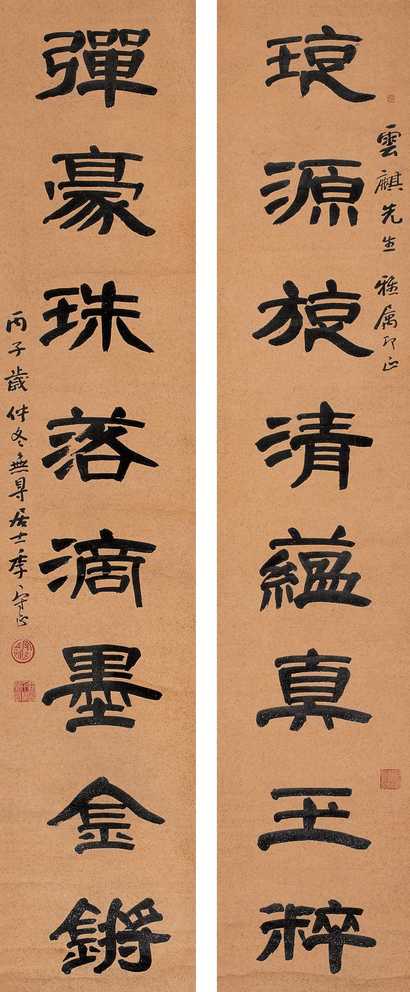 雲麒先生雅属即正
琁源旋清蘊真玉粹
彈豪珠落滴墨金鏘
丙子歲仲冬無㝵居士季守正